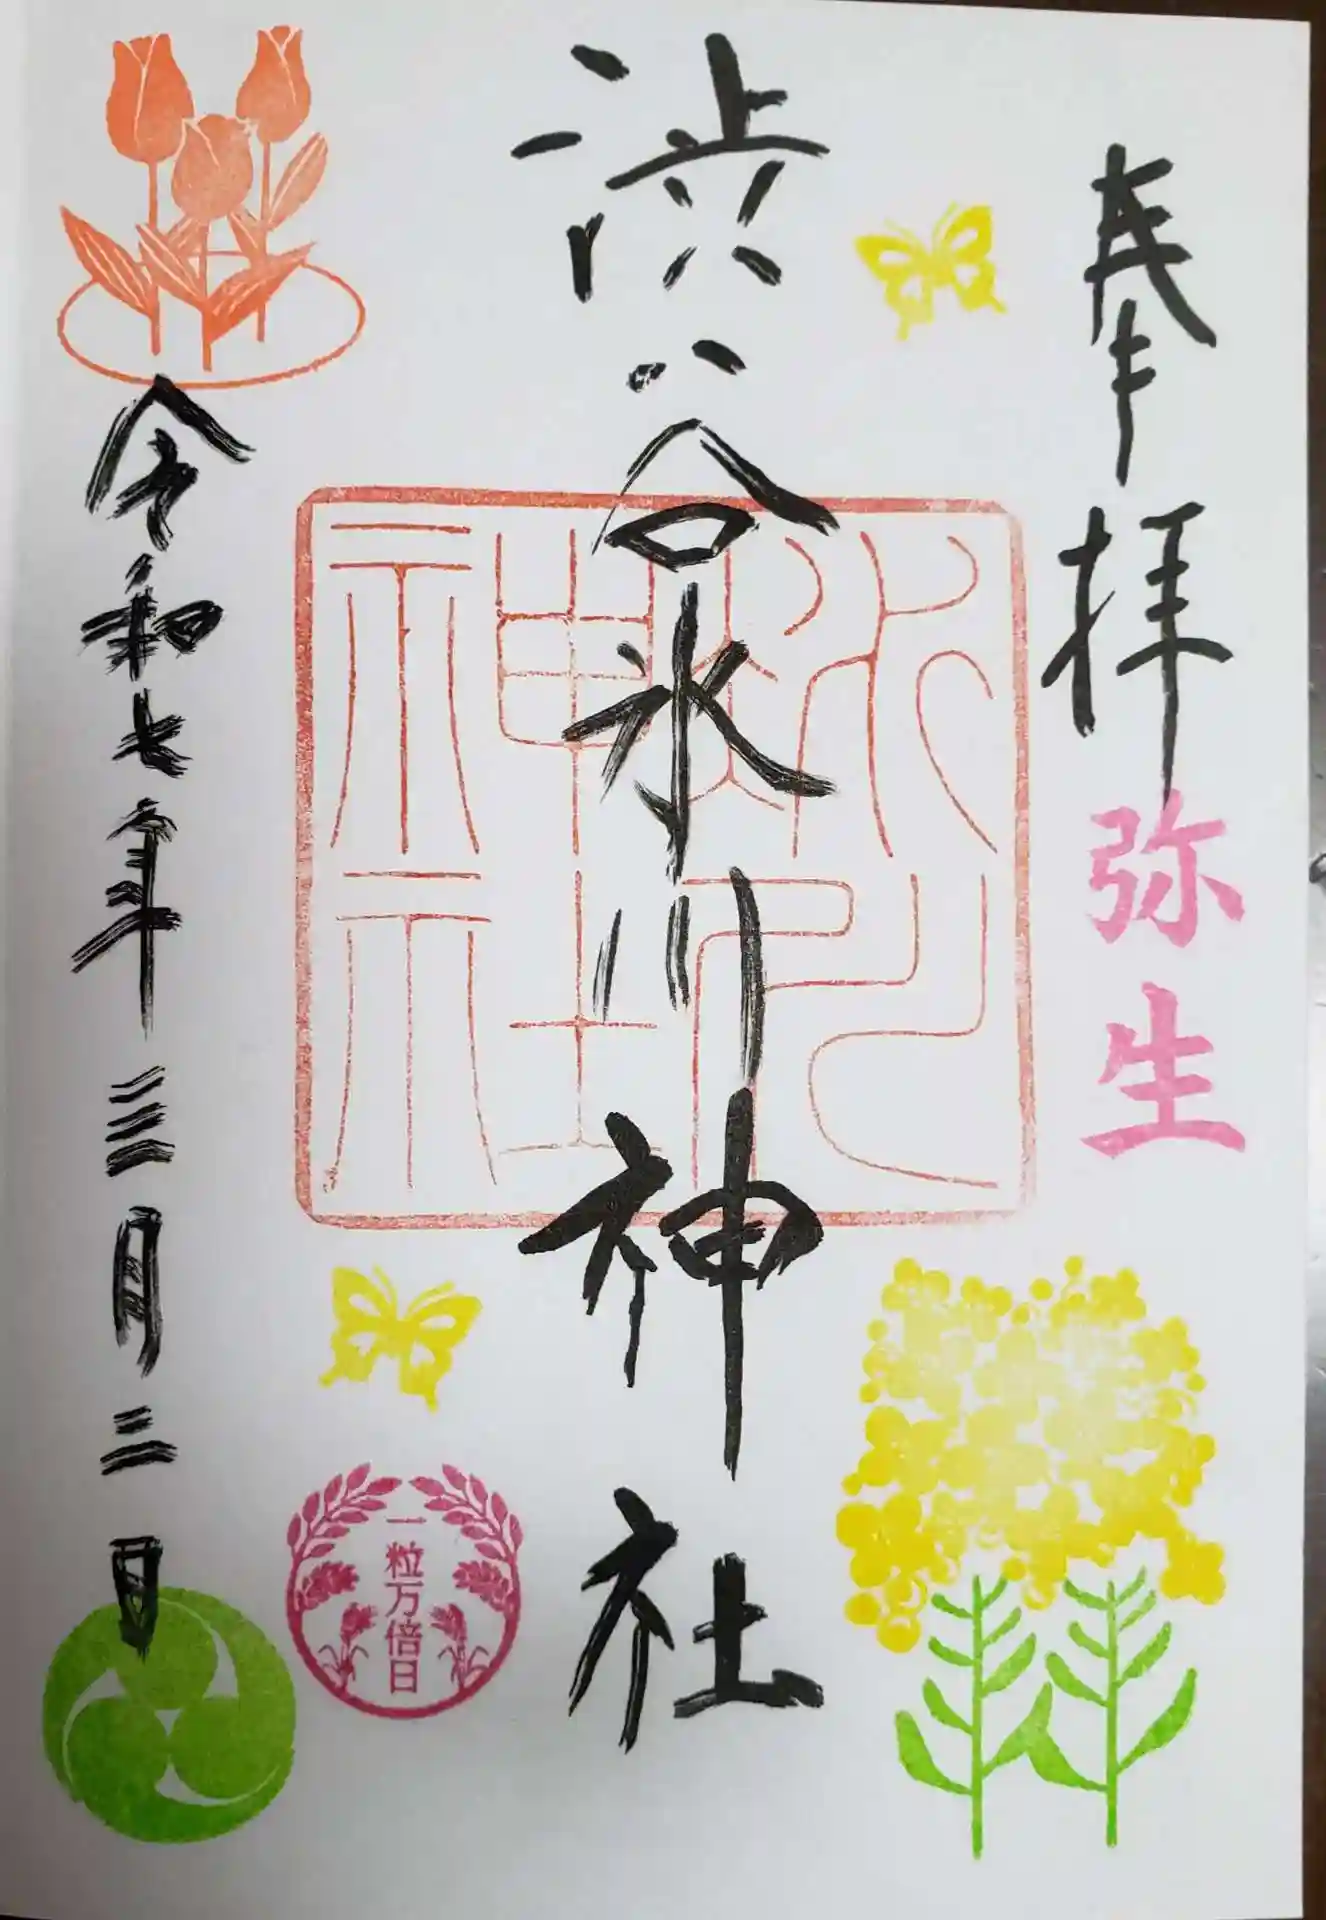 奉拝
弥生
渋谷氷川神社
氷川神社
一粒万倍日
令和七年三月三日